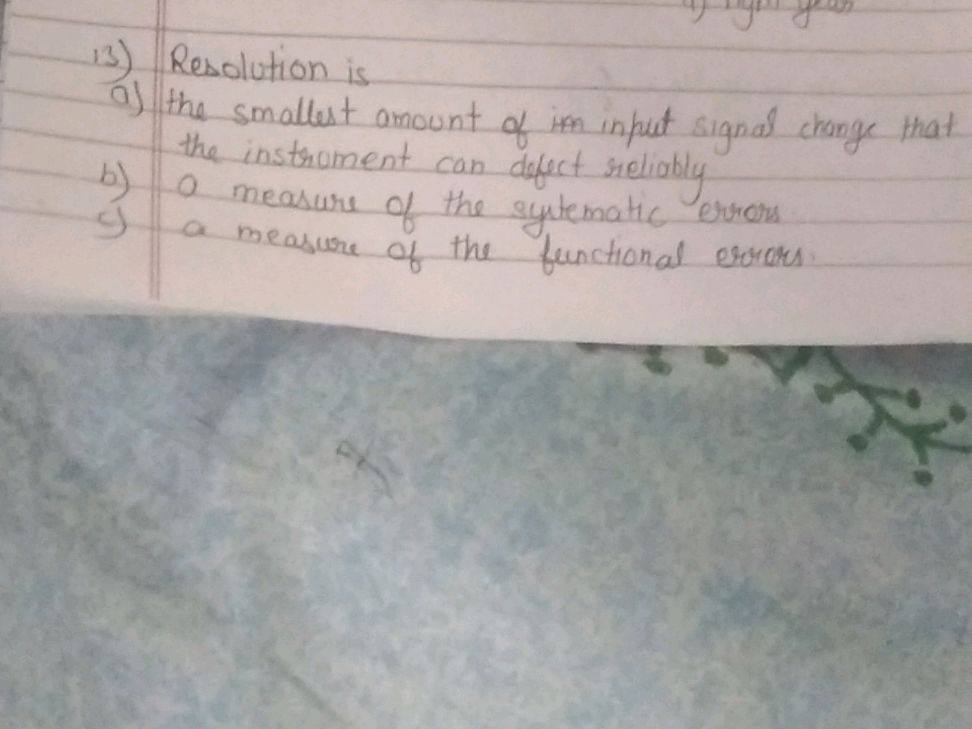 d) light year
13) Resolution is
a) the smallest amount of input signal change that
the instroment can defect reliably
b) a measure of the systematic errors
c) a measure of the functional errors.